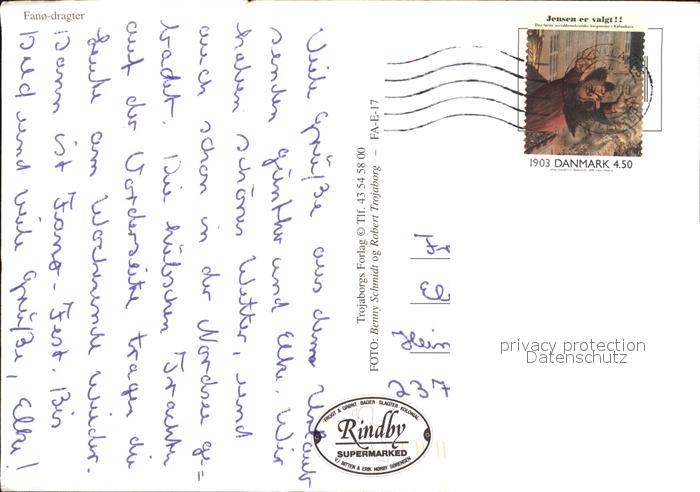 Fanø-dragter
Viele Grüße aus dem Urlaub
senden Günther und Elke. Wir
haben schönes Wetter, und
auch schon in der Nordsee ge=
badet. Die hübschen Trachten
auf der Vorderseite tragen die
Leute am Wochenende wieder.
Dann ist Fanø-Fest. Bis
Bald und viele Grüße, Elke!
Trojaborgs Forlag © Tlf. 43 54 58 00
FOTO: Benny Schmidt og Robert Trojaborg – FA-E-17
Jensen er valgt!!
1903 DANMARK 4.50
Hein
237
privacy protection
Datenschutz
FRUGT & GRØNT - BAGER - SLAGTER KOLONIAL
Rindby
SUPERMARKED
V/ JYTTEN & ERIK NØRBY SØRENSEN